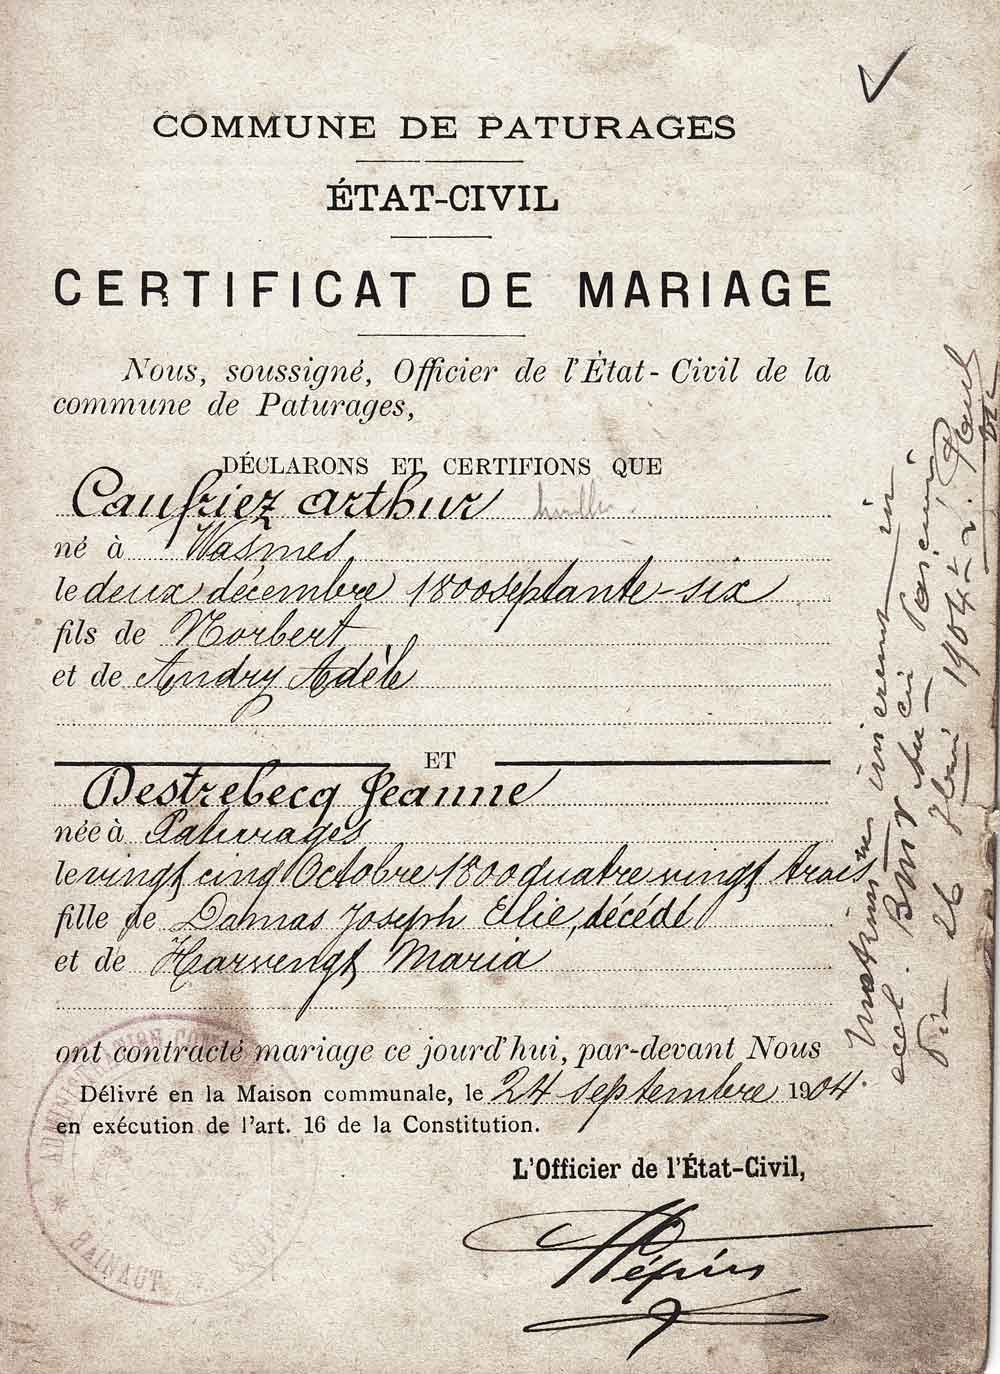 COMMUNE DE PATURAGES
ÉTAT-CIVIL
CERTIFICAT DE MARIAGE
Nous, soussigné, Officier de l'État-Civil de la
commune de Paturages,
DÉCLARONS ET CERTIFIONS QUE
Caufriez Arthur
né à Wasmes
le deux décembre 1800septante-six
fils de Norbert
et de Andry Adèle
ET
Destrebecq Jeanne
née à Paturages
le vingt cinq Octobre 1800quatre vingt trois
fille de Damas Joseph Elie, décédé
et de Harvengt Maria
ont contracté mariage ce jourd'hui, par-devant Nous
Délivré en la Maison communale, le 24 septembre 1904.
en exécution de l'art. 16 de la Constitution.
L'Officier de l'État-Civil,
Pépin
HAINAUT
inierunt in
eccl. BMV
26 1904